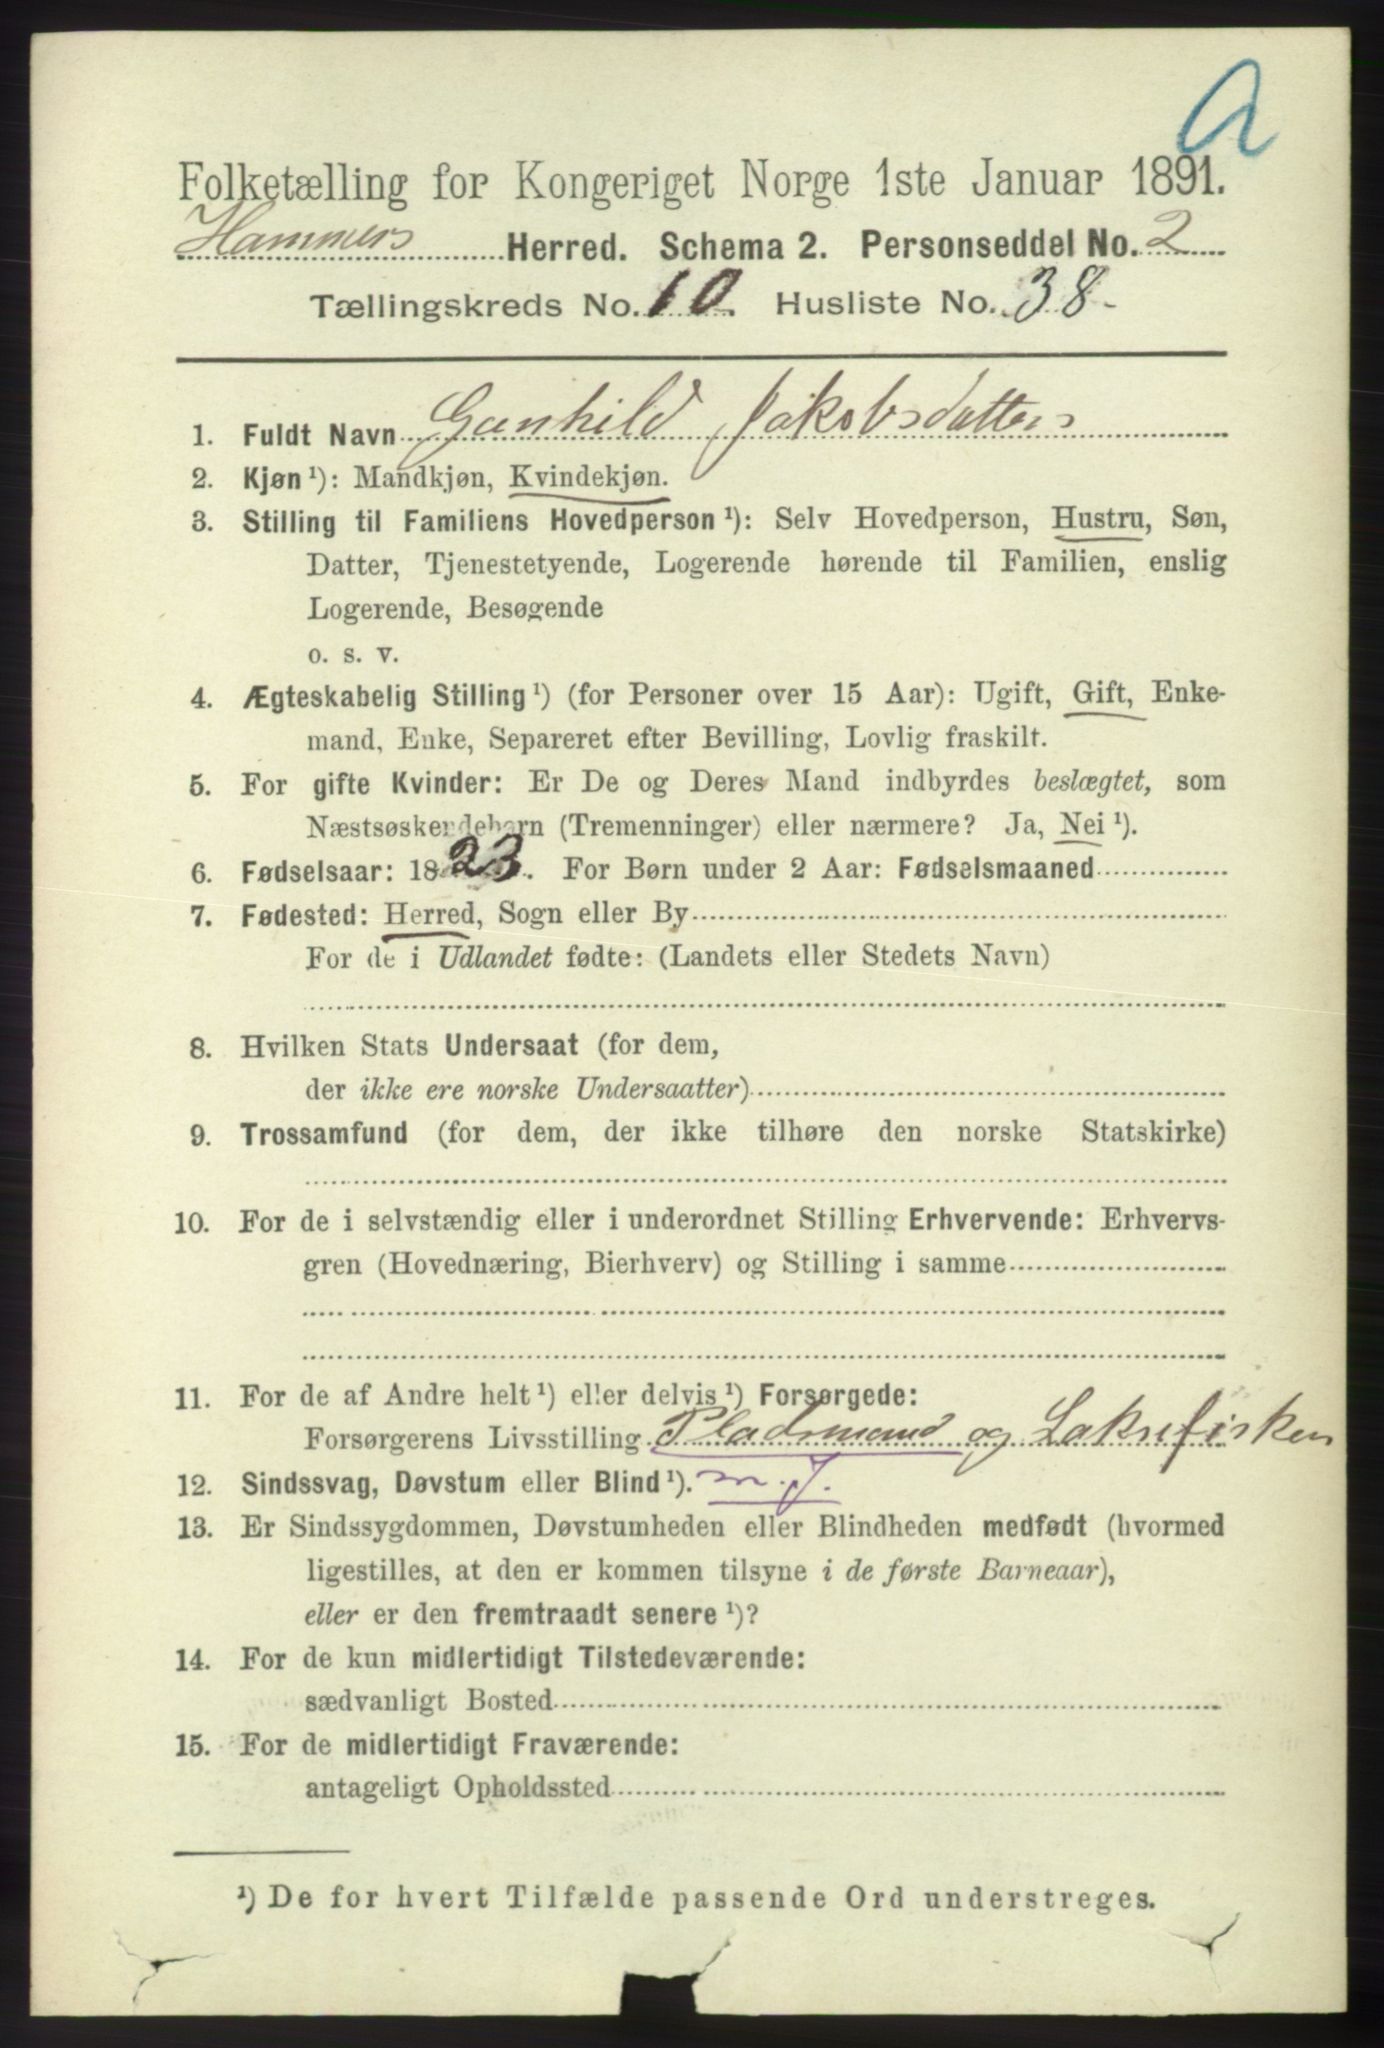 a
Folketælling for Kongeriget Norge 1ste Januar 1891.
Hammers Herred. Schema 2. Personseddel No. 2
Tællingskreds No. 10. Husliste No. 38-
1. Fuldt Navn Gunhild Jakobsdatter
2. Kjøn ¹): Mandkjøn, Kvindekjøn.
3. Stilling til Familiens Hovedperson ¹): Selv Hovedperson, Hustru, Søn,
Datter, Tjenestetyende, Logerende hørende til Familien, enslig
Logerende, Besøgende
o. s. v.
4. Ægteskabelig Stilling ¹) (for Personer over 15 Aar): Ugift, Gift, Enke-
mand, Enke, Separeret efter Bevilling, Lovlig fraskilt.
5. For gifte Kvinder: Er De og Deres Mand indbyrdes beslægtet, som
Næstsøskendebarn (Tremenninger) eller nærmere? Ja, Nei ¹).
6. Fødselsaar: 1823. For Børn under 2 Aar: Fødselsmaaned
7. Fødested: Herred, Sogn eller By
For de i Udlandet fødte: (Landets eller Stedets Navn)
8. Hvilken Stats Undersaat (for dem,
der ikke ere norske Undersaatter)
9. Trossamfund (for dem, der ikke tilhøre den norske Statskirke)
10. For de i selvstændig eller i underordnet Stilling Erhvervende: Erhvervs-
gren (Hovednæring, Bierhverv) og Stilling i samme
11. For de af Andre helt ¹) eller delvis ¹) Forsørgede:
Forsørgerens Livsstilling Pladsmand og Laksefisker
12. Sindssvag, Døvstum eller Blind ¹). m. J.
13. Er Sindssygdommen, Døvstumheden eller Blindheden medfødt (hvormed
ligestilles, at den er kommen tilsyne i de første Barneaar),
eller er den fremtraadt senere ¹)?
14. For de kun midlertidigt Tilstedeværende:
sædvanligt Bosted
15. For de midlertidigt Fraværende:
antageligt Opholdssted
¹) De for hvert Tilfælde passende Ord understreges.